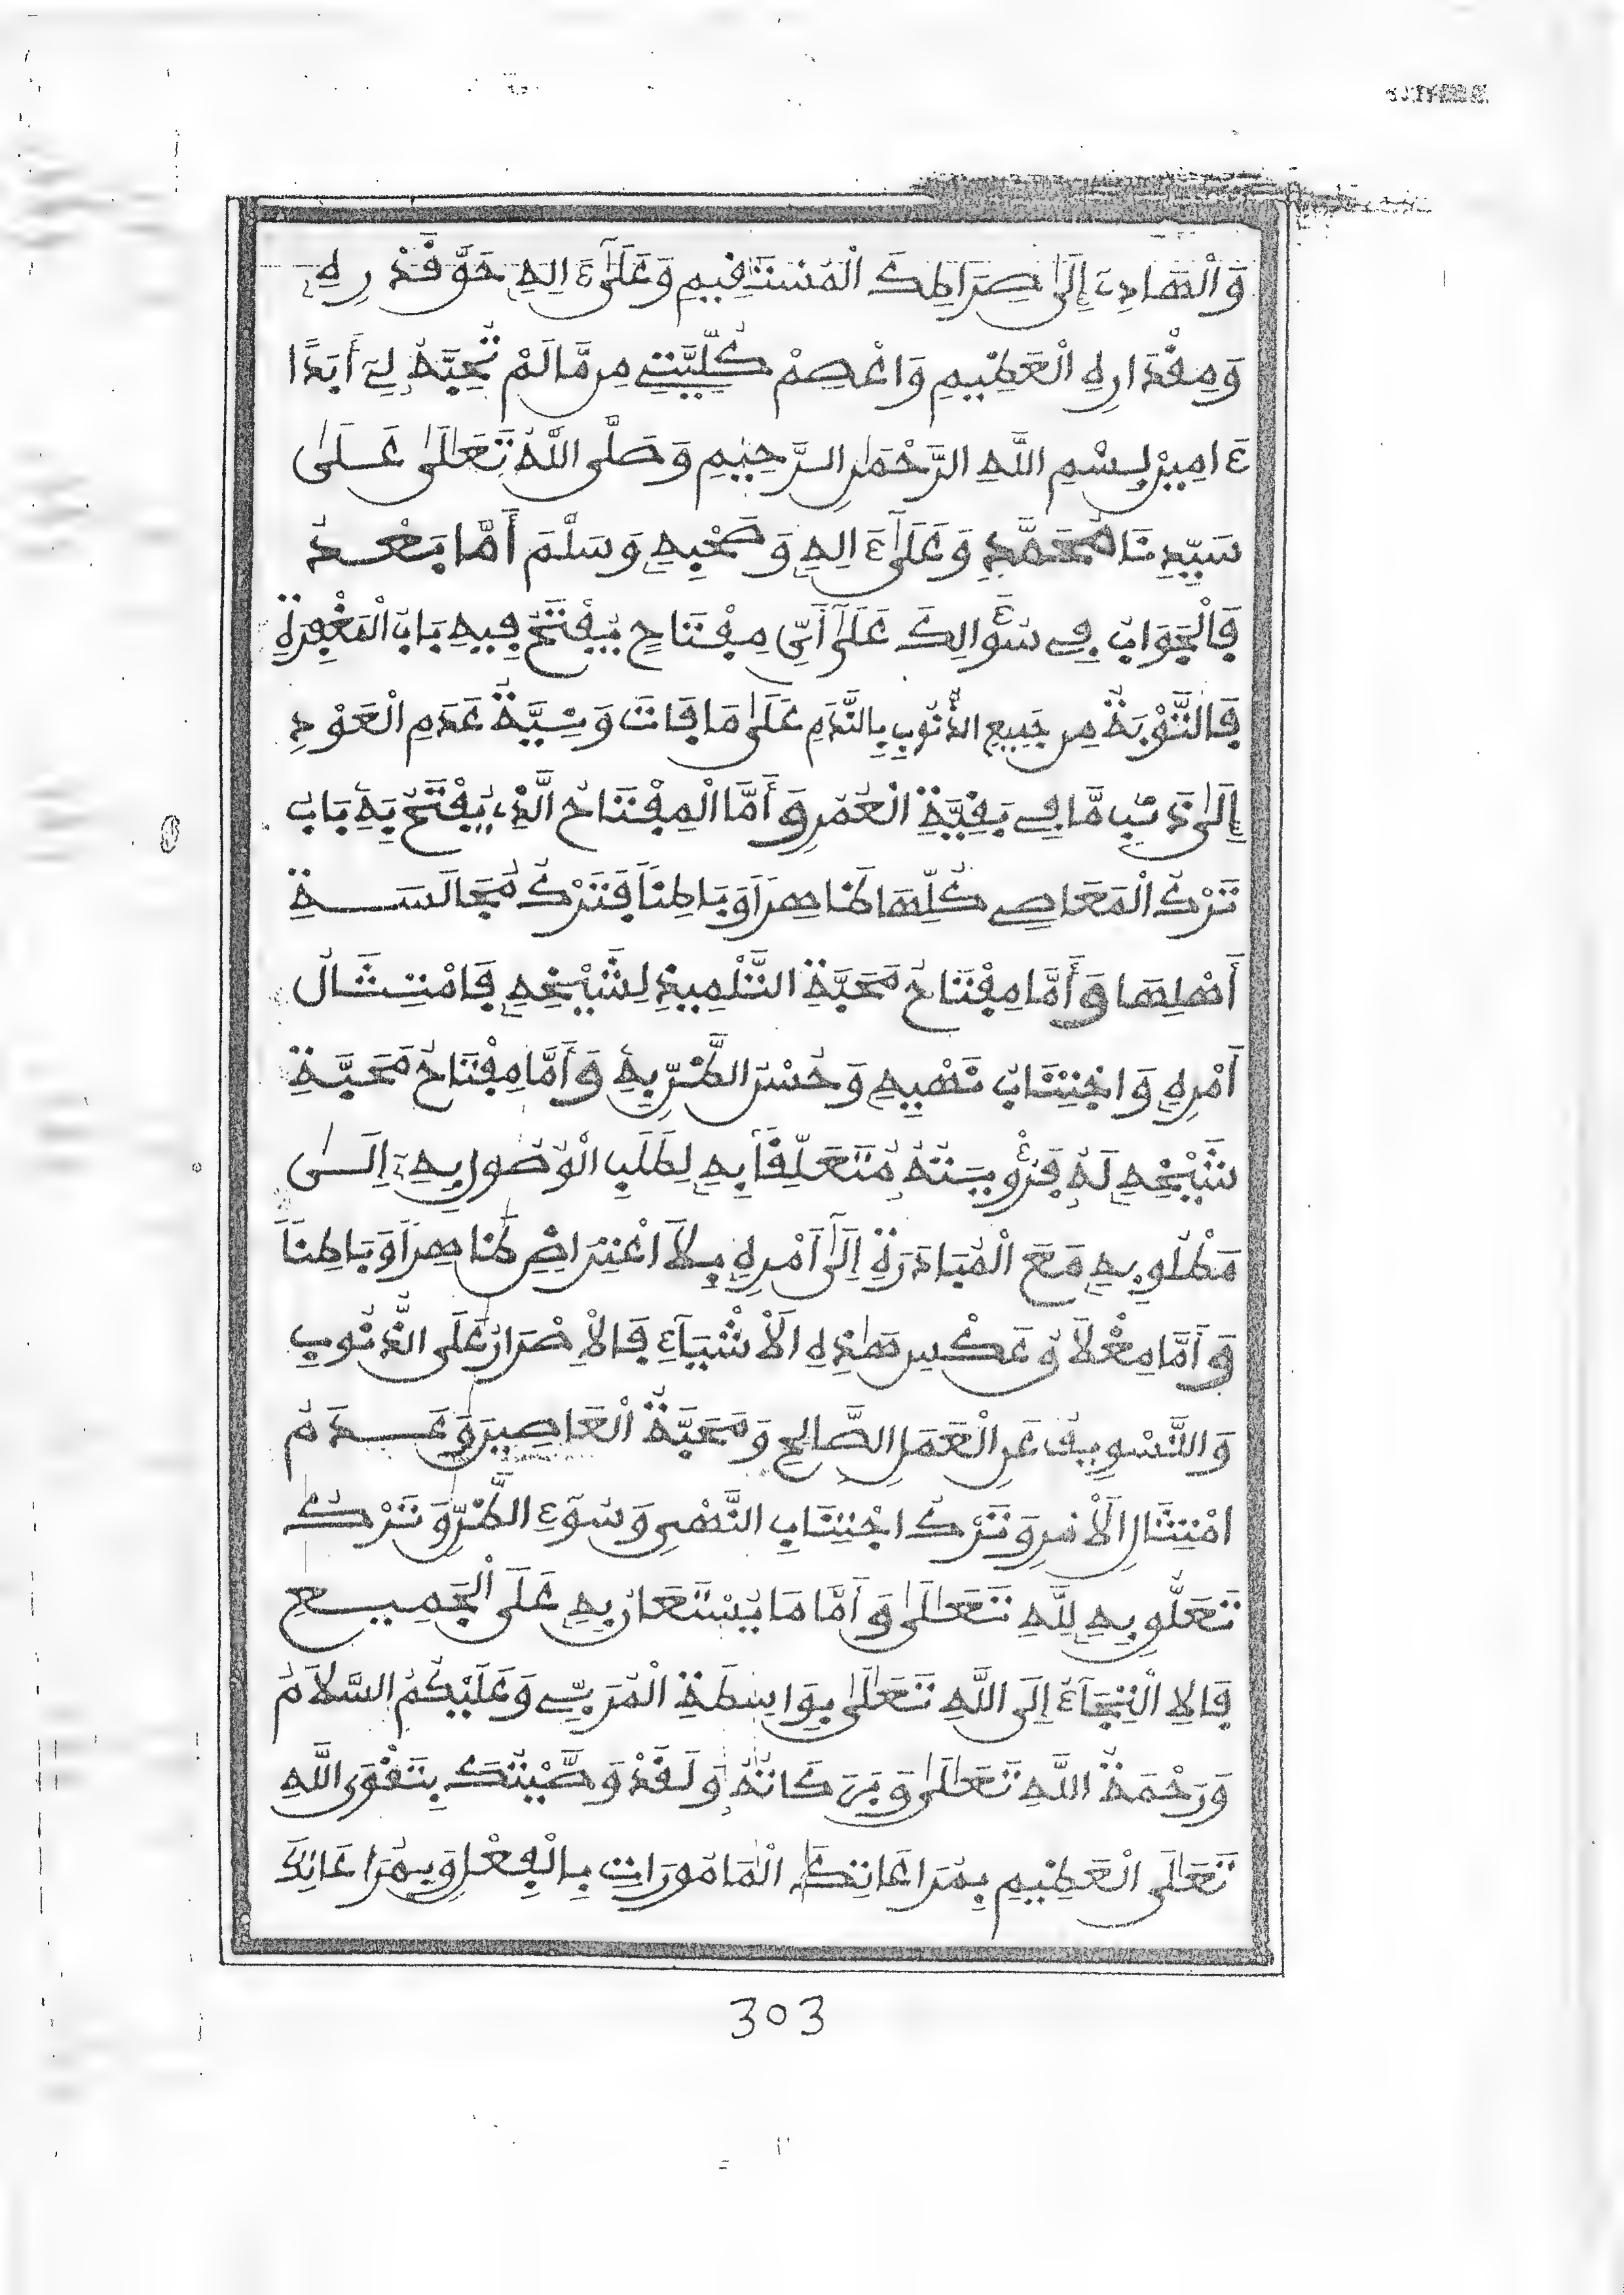 وَالْهَادِي إِلَىٰ صِرَاطِكَ الْمُسْتَقِيمِ وَعَلَىٰ ءَالِهِ حَقَّ قَدْرِهِ
وَمِقْدَارِهِ الْعَظِيمِ وَاعْصِمْ كُلِّيَّتِي مِن مَّا لَمْ تُحِبَّهُ لِي أَبَدًا
ءَامِين بِسْمِ اللَّهِ الرَّحْمَٰنِ الرَّحِيمِ وَصَلَّى اللَّهُ تَعَالَىٰ عَلَىٰ
سَيِّدِنَا مُحَمَّدٍ وَعَلَىٰ ءَالِهِ وَصَحْبِهِ وَسَلَّمَ أَمَّا بَعْدُ
فَالْجَوَابُ فِي سُؤَالِكَ عَلَىٰ أَيِّ مِفْتَاحٍ يُفْتَحُ فِيهِ بَابُ الْمَغْفِرَةِ
فَالتَّوْبَةُ مِن جَمِيعِ الذُّنُوبِ بِالنَّدَمِ عَلَىٰ مَا فَاتَ وَنِيَّةُ عَدَمِ الْعَوْدِ
إِلَىٰ ذَنْبٍ مَّا فِي بَقِيَّةِ الْعُمْرِ وَأَمَّا الْمِفْتَاحُ الَّذِي يُفْتَحُ بِهِ بَابُ
تَرْكِ الْمَعَاصِي كُلِّهَا ظَاهِرًا وَبَاطِنًا فَتَرْكُ مُجَالَسَةِ
أَهْلِهَا وَأَمَّا مِفْتَاحُ مَحَبَّةِ التِّلْمِيذِ لِشَيْخِهِ فَامْتِثَالُ
أَمْرِهِ وَاجْتِنَابُ نَهْيِهِ وَحُسْنُ الظَّنِّ بِهِ وَأَمَّا مِفْتَاحُ مَحَبَّةِ
شَيْخِهِ لَهُ فَرُؤْيَتُهُ مُتَعَلِّقًا بِهِ لِطَلَبِ الْوُصُولِ بِهِ إِلَىٰ
مَطْلُوبِهِ مَعَ الْمُبَادَرَةِ إِلَىٰ أَمْرِهِ بِلَا اعْتِرَاضٍ ظَاهِرًا وَبَاطِنًا
وَأَمَّا مِغْلَاقُ عَكْسِ هَٰذِهِ الْأَشْيَاءِ فَالْإِصْرَارُ عَلَى الذُّنُوبِ
وَالتَّسْوِيفُ عَنِ الْعَمَلِ الصَّالِحِ وَمَحَبَّةُ الْعَاصِينَ وَعَدَمُ
امْتِثَالِ الْأَمْرِ وَتَرْكُ اجْتِنَابِ النَّهْيِ وَسُوءُ الظَّنِّ وَتَرْكُ
تَعَلُّقٍ بِهِ لِلَّهِ تَعَالَىٰ وَأَمَّا مَا يُسْتَعَانُ بِهِ عَلَى الْجَمِيعِ
فَالِالْتِجَاءُ إِلَى اللَّهِ تَعَالَىٰ بِوَاسِطَةِ الْمُرَبِّي وَعَلَيْكُمُ السَّلَامُ
وَرَحْمَةُ اللَّهِ تَعَالَىٰ وَبَرَكَاتُهُ وَلَقَدْ وَصَّيْتُكَ بِتَقْوَى اللَّهِ
تَعَالَى الْعَظِيمِ بِمُرَاعَاتِكَ الْمَامُورَاتِ بِالْفِعْلِ وَبِمُرَاعَاتِكَ
303